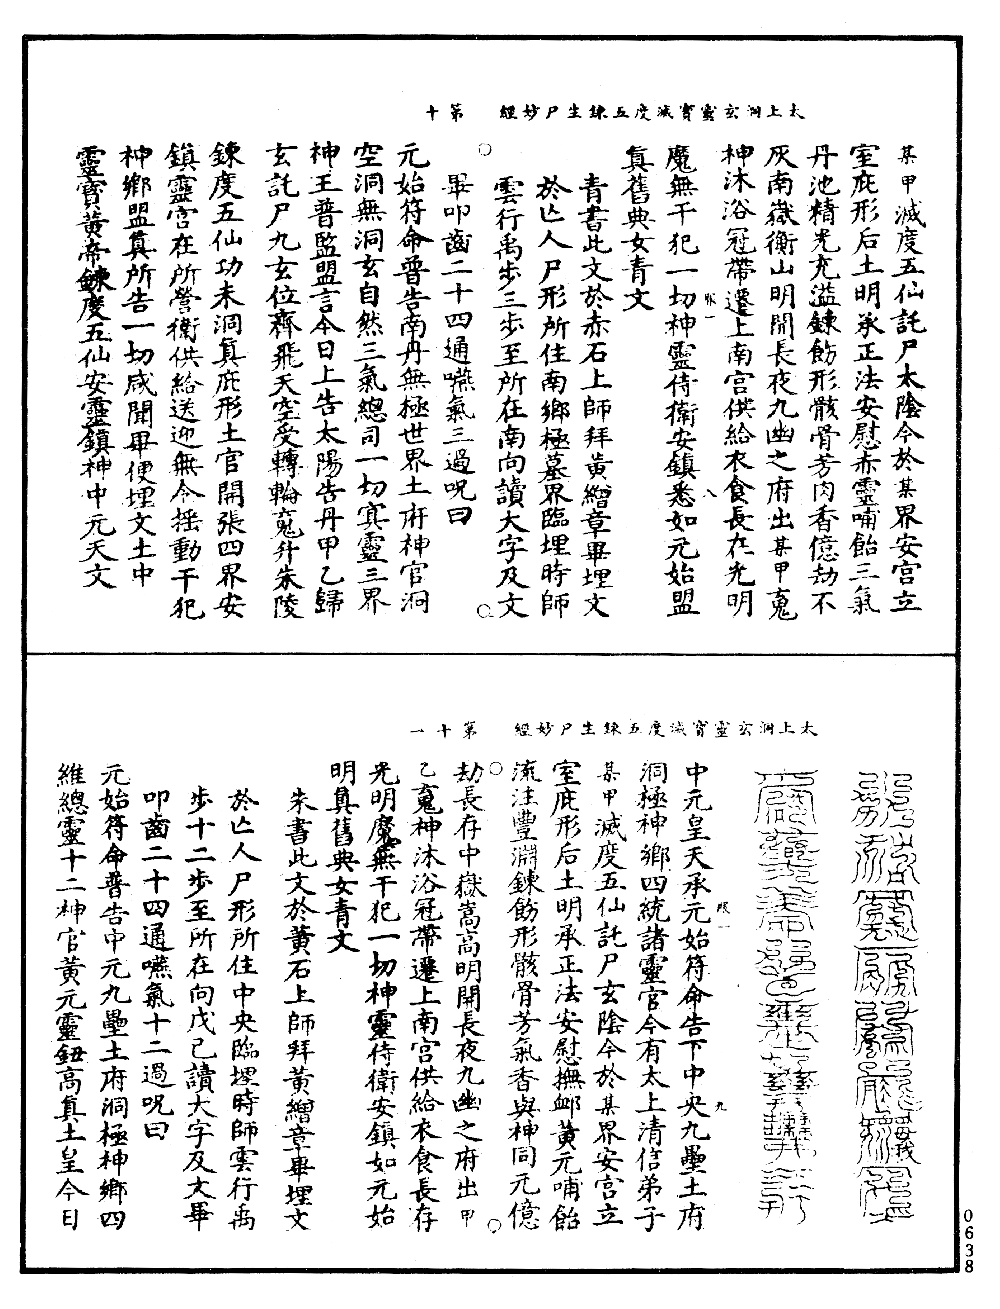 太上洞玄靈寶滅度五鍊生尸妙經　第十
某甲滅度五仙託尸太陰今於某界安宮立
室庇形后土明承正法安慰赤靈哺飴三氣
丹池精光充溢鍊飭形骸骨芳肉香億劫不
灰南嶽衡山明開長夜九幽之府出某甲䰟
神沐浴冠帶遷上南宮供給衣食長在光明
魔無干犯一切神靈侍衛安鎮悉如元始盟
真舊典女青文
青書此文於赤石上師拜黃繒章畢埋文
於亡人尸形所住南鄉極墓界臨埋時師
雲行禹步三步至所在南向讀大字及文
畢叩齒二十四通嚥氣三過呪曰
元始符命普告南丹無極世界土府神官洞
空洞無洞玄自然三氣總司一切冥靈三界
神王普監盟言今日上告太陽告丹甲乙歸
玄託尸九玄位齊飛天空受轉輪䰟升朱陵
鍊度五仙功未洞真庇形土官開張四界安
鎮靈宮在所營衛供給送迎無令搖動干犯
神鄉盟真所告一切咸聞畢便埋文土中
靈寶黃帝鍊度五仙安靈鎮神中元天文
太上洞玄靈寶滅度五鍊生尸妙經　第十一
中元皇天承元始符命告下中央九壘土府
洞極神鄉四統諸靈官今有太上清信弟子
某甲滅度五仙託尸玄陰今於某界安宮立
室庇形后土明承正法安慰撫卹黃元哺飴
流注豐淵鍊飭形骸骨芳氣香與神同元億
劫長存中嶽嵩高明開長夜九幽之府出甲
乙䰟神沐浴冠帶遷上南宮供給衣食長存
光明魔無干犯一切神靈侍衛安鎮如元始
明真舊典女青文
朱書此文於黃石上師拜黃繒章畢埋文
於亡人尸形所住中央臨埋時師雲行禹
步十二步至所在向戊己讀大字及文畢
叩齒二十四通嚥氣十二過呪曰
元始符命普告中元九壘土府洞極神鄉四
維總靈十二神官黃元靈鈕高真土皇今日
0638